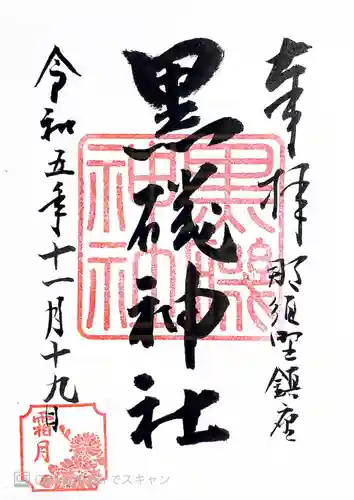 奉拝
那須野鎮座
黒磯神社
黒磯神社
令和五年十一月十九日
霜月
でスキャン